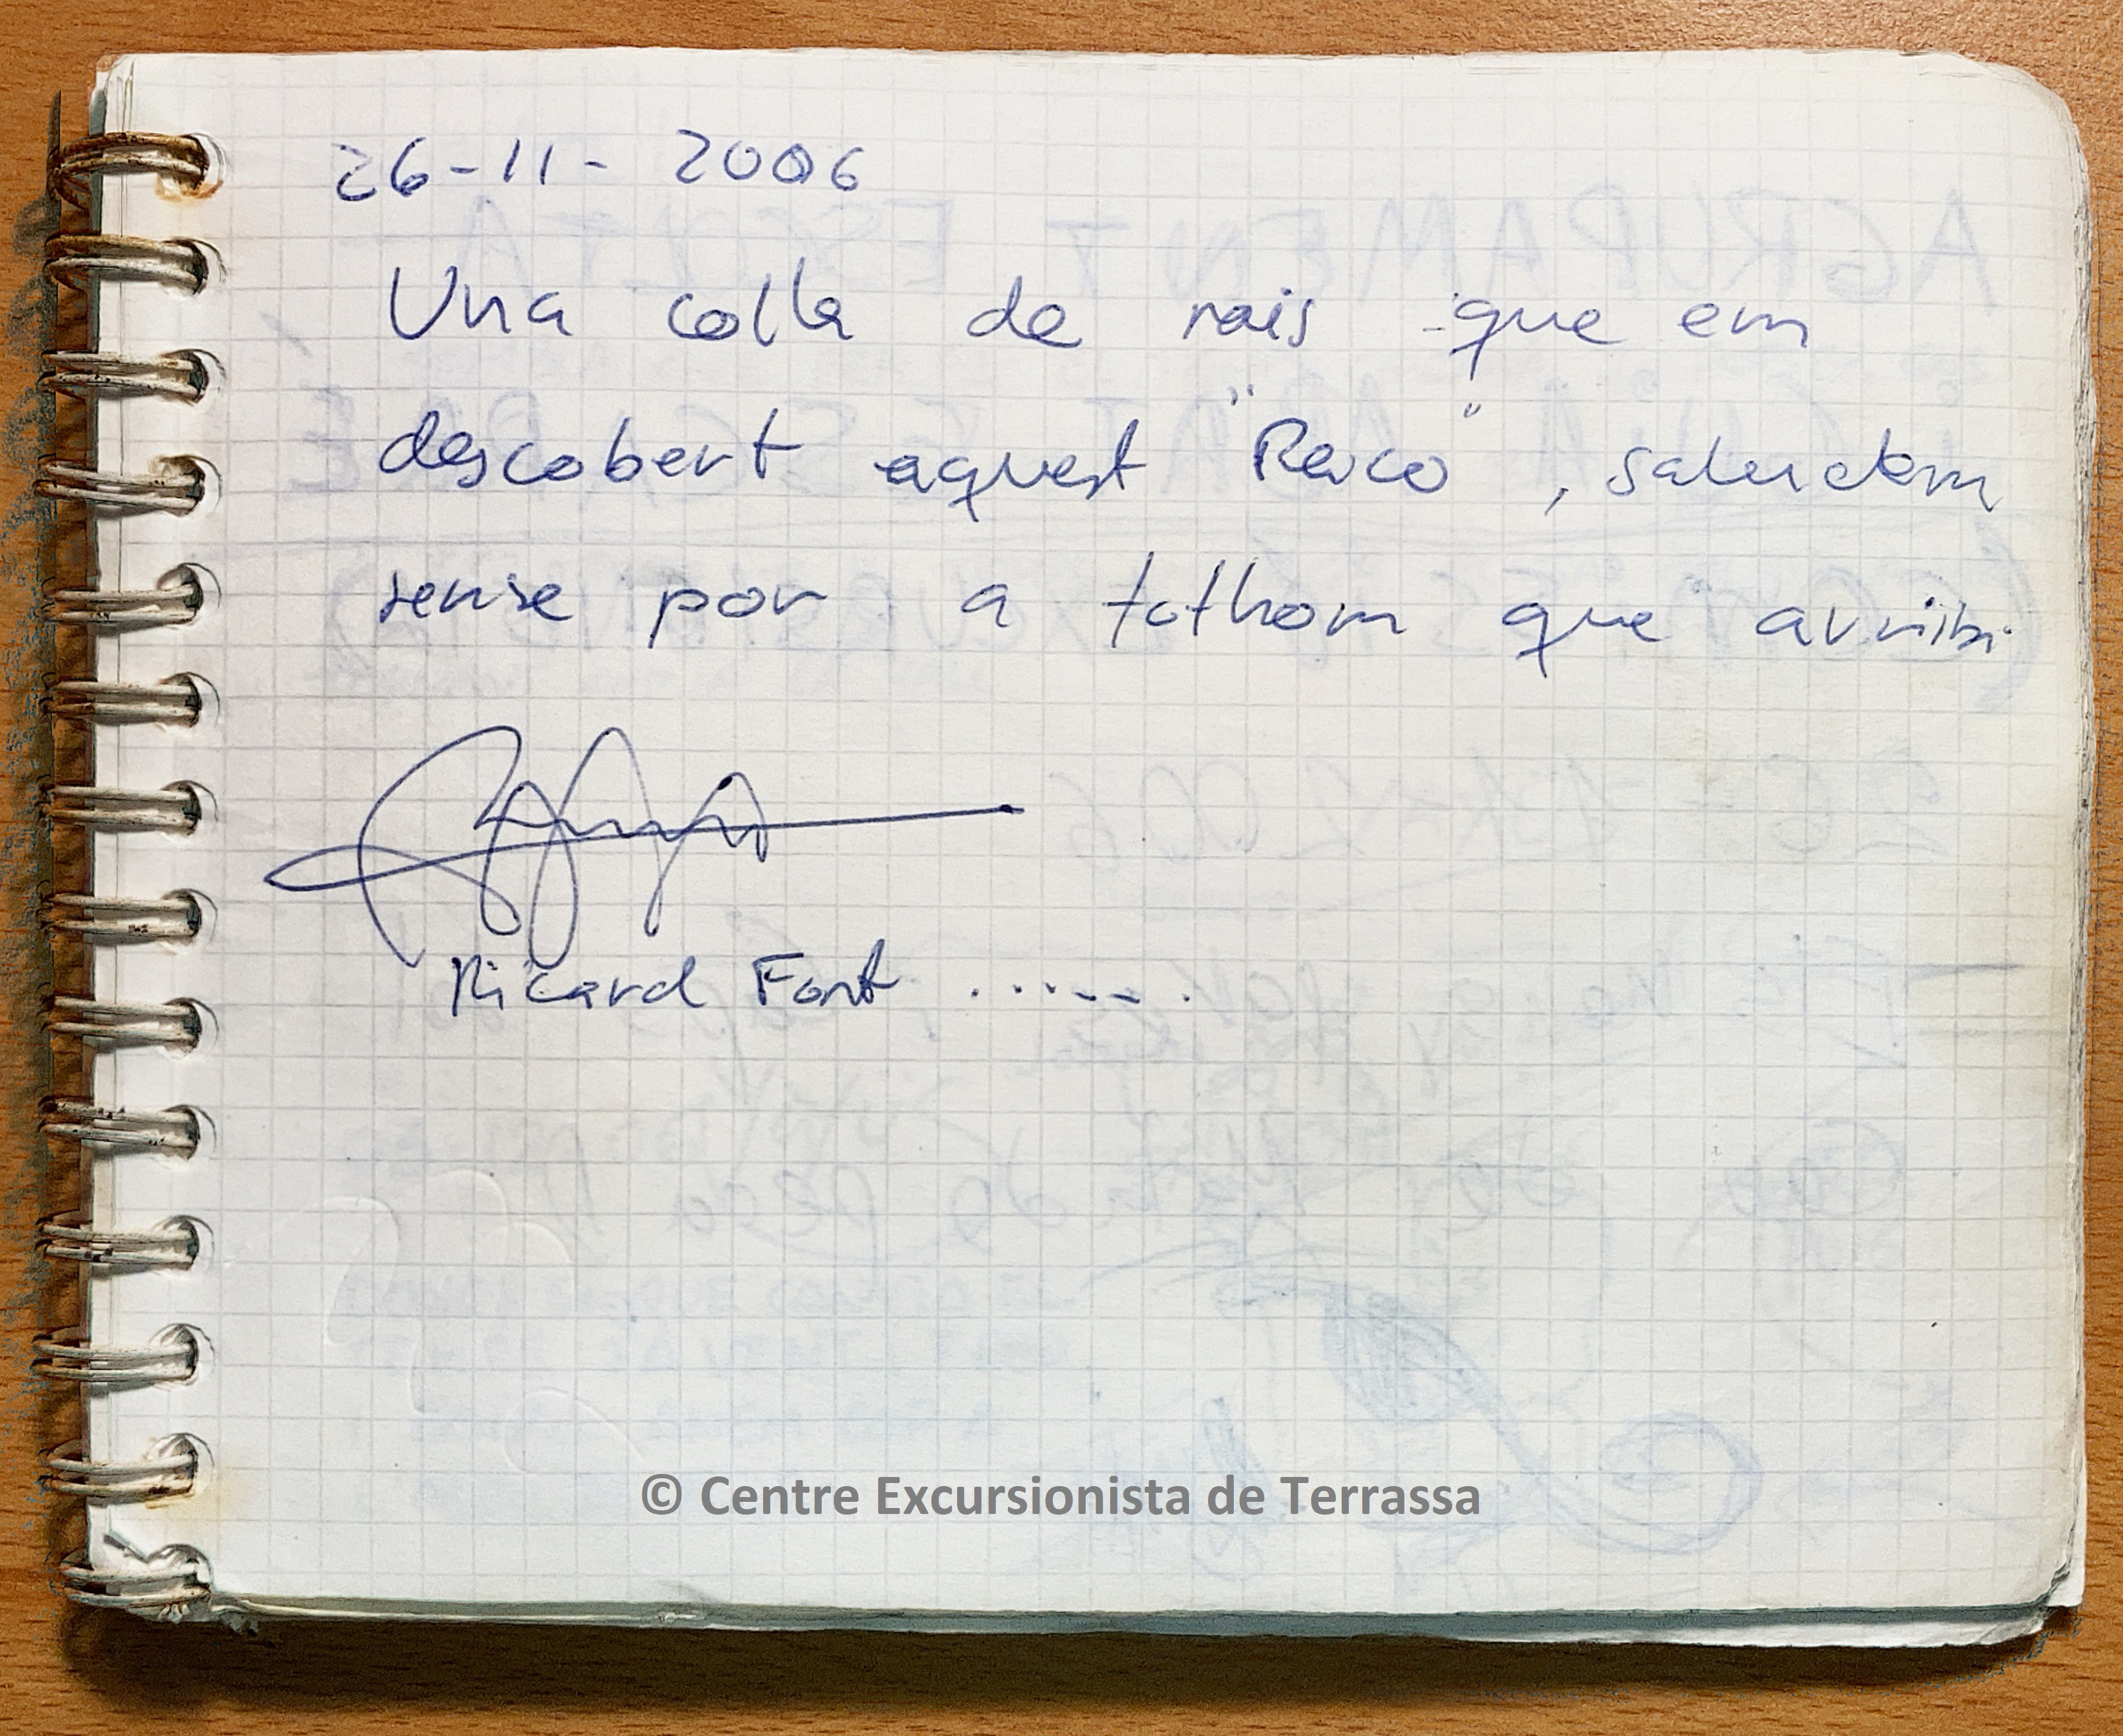 26-11-2006
Una colla de nois que em
descobert aquest "Reco", saludem
sense por a tothom que arribi
Ricard Font .......
© Centre Excursionista de Terrassa